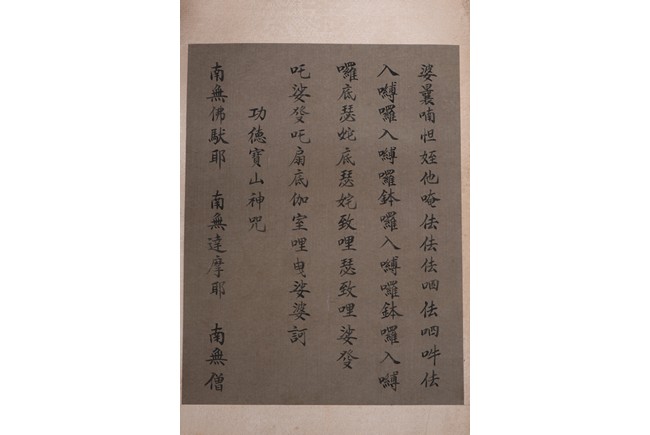 娑曩喃怛姪他唵佉佉佉呬佉呬吽佉
入嚩囉入嚩囉鉢囉入嚩囉鉢囉入嚩
囉底瑟姹底瑟姹致哩瑟致哩娑癹
吒娑癹吒扇底伽室哩曳娑婆訶
功德寶山神咒
南無佛馱耶 南無達摩耶 南無僧